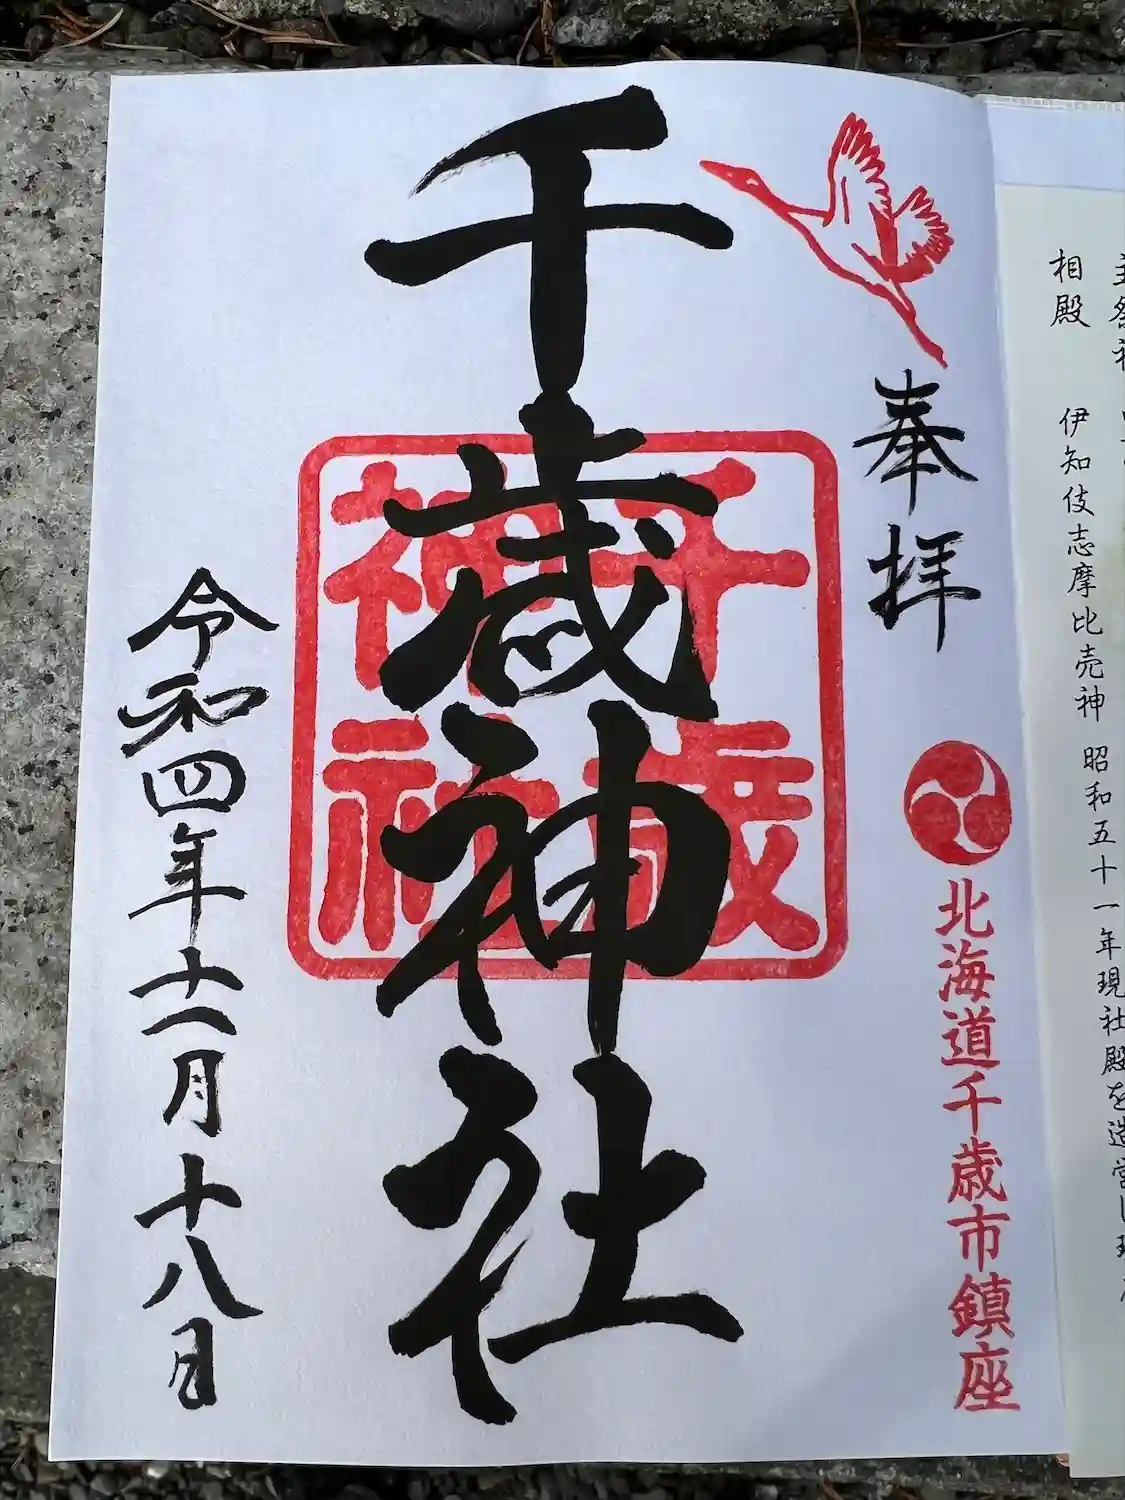 主祭神
相殿 伊知伎志摩比売神 昭和五十一年現社殿を造営し現
奉拝
北海道千歳市鎮座
千歳神社
千歳
神社
令和四年十一月十八日